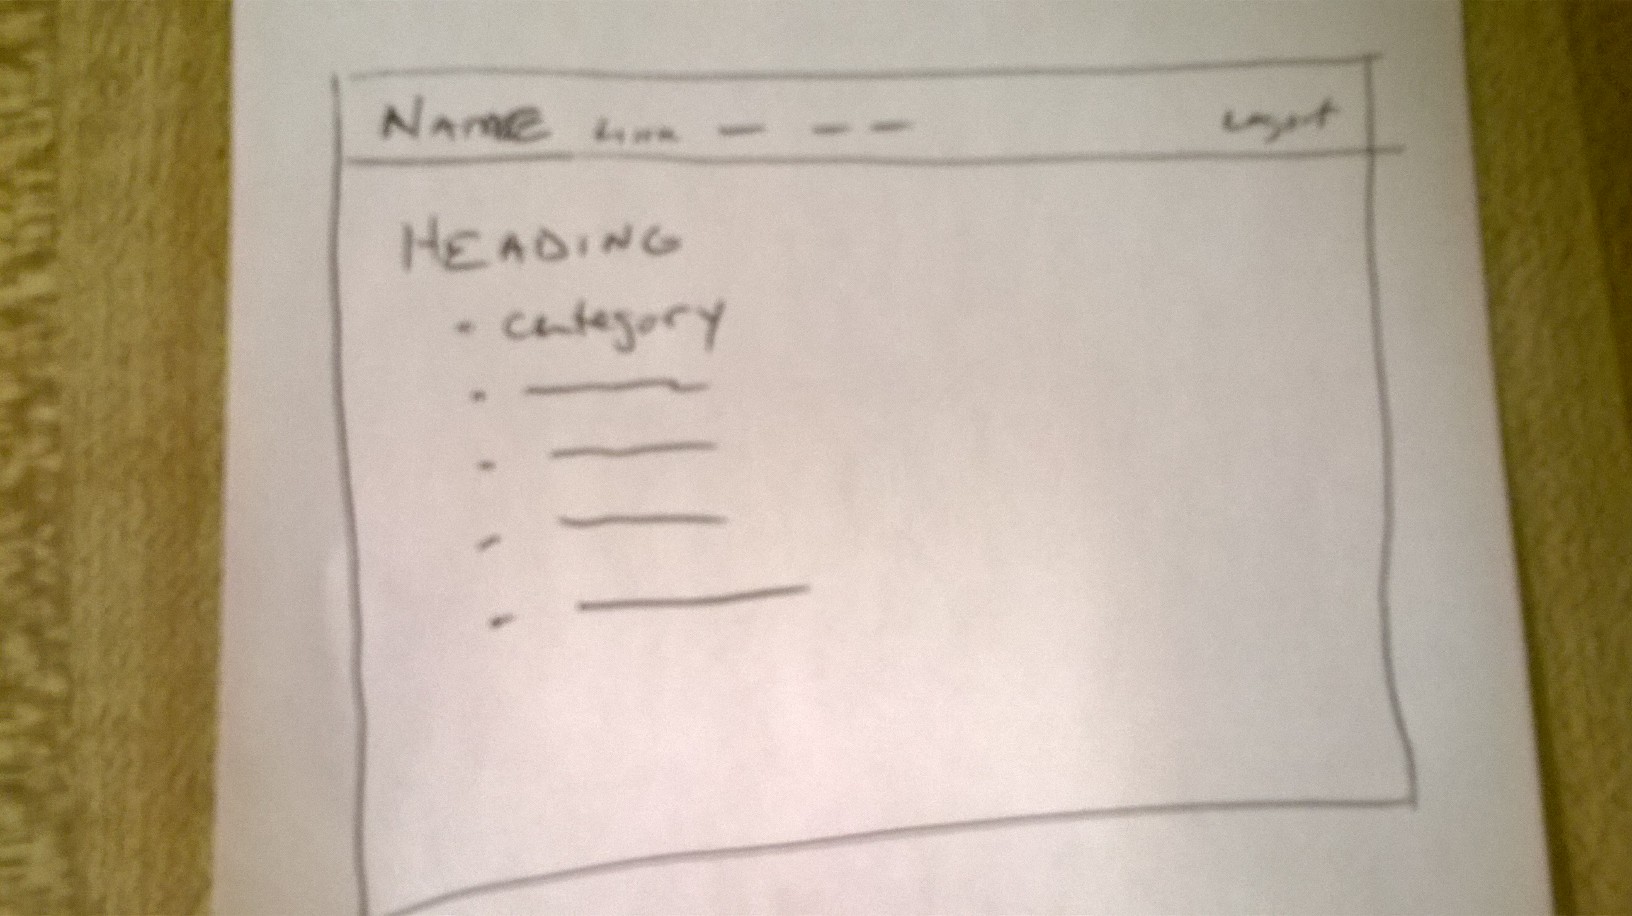 NAME Link Logout
HEADING
• category